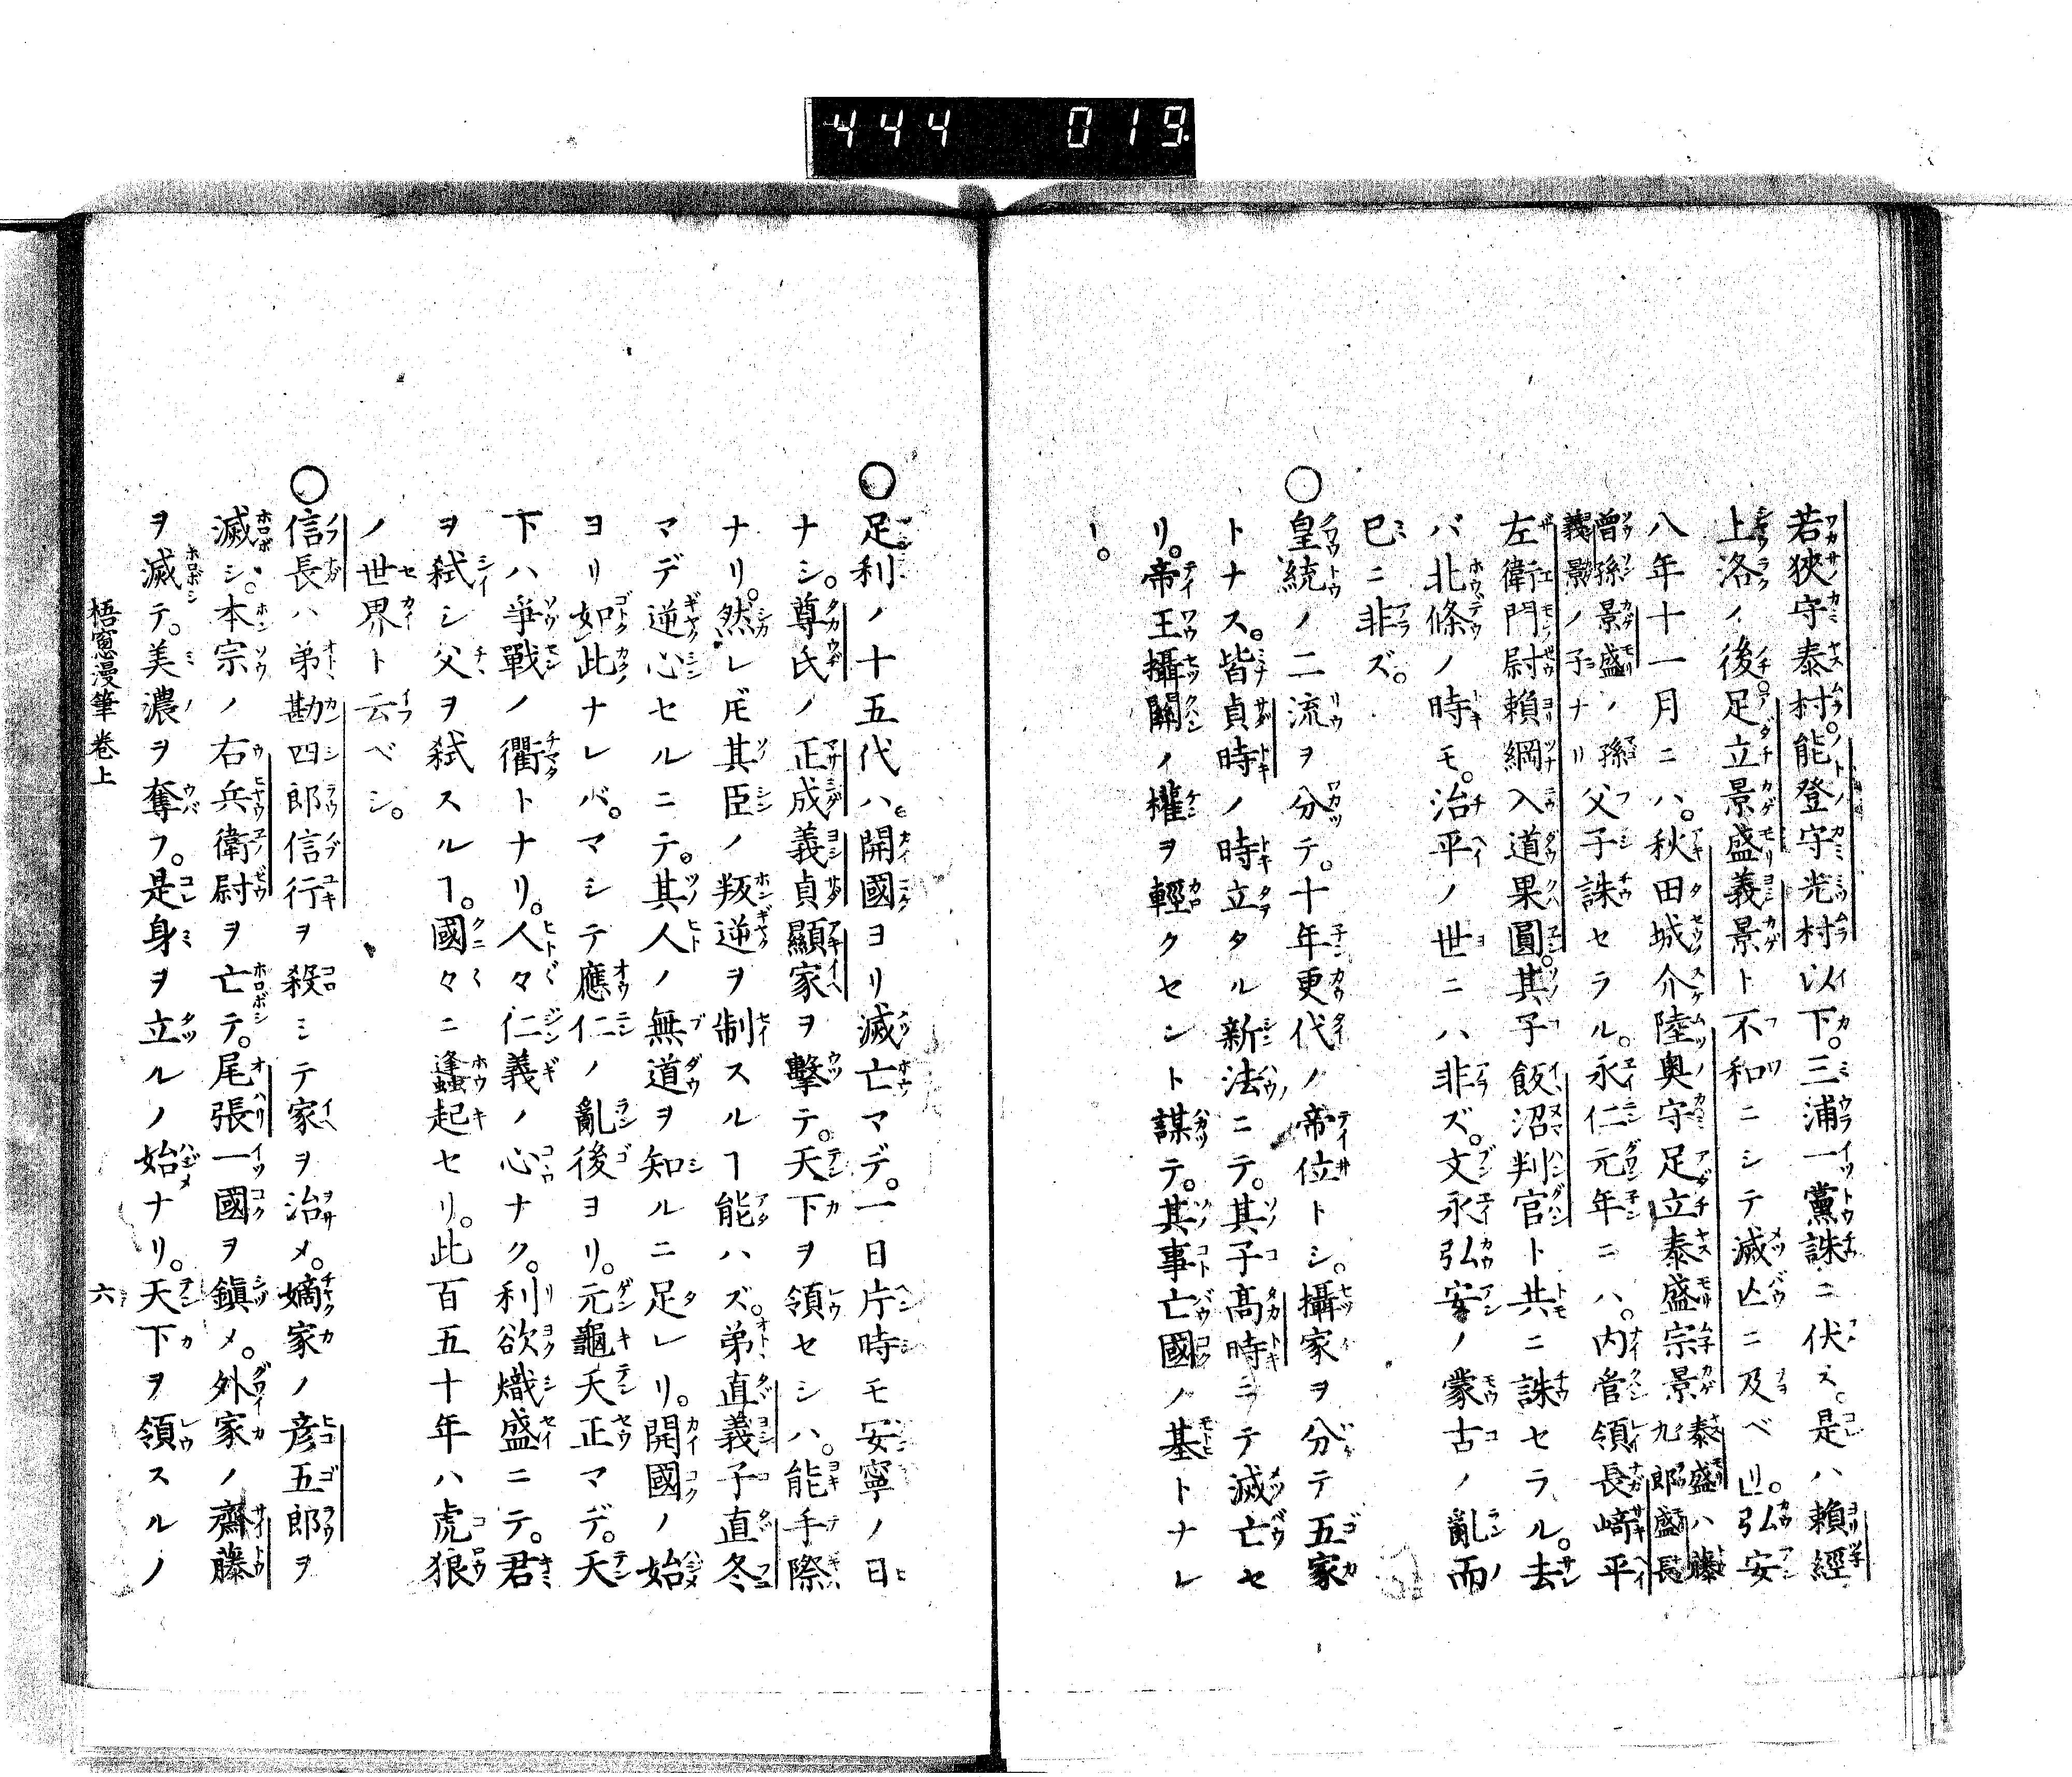 444 019
若狹守泰村。能登守光村以下。三浦一黨誅ニ伏ス。是ハ賴經
上洛ノ後。足立景盛義景ト不和ニシテ滅亡ニ及ベリ。弘安
八年十一月ニハ。秋田城介陸奥守足立泰盛宗景泰盛ハ藤九郎盛長
曾孫景盛ノ孫義景ノ子ナリ父子誅セラル。永仁元年ニハ。内管領長﨑平
左衛門尉賴綱入道果圓。其子飯沼判官ト共ニ誅セラル。去
バ北條ノ時モ。治平ノ世ニハ非ズ。文永弘安ノ蒙古ノ亂而
巳ニ非ズ。
○皇統ノ二流ヲ分テ。十年更代ノ帝位トシ。攝家ヲ分テ五家
トナス。皆貞時ノ時立タル新法ニテ。其子髙時ニテ滅亡セ
リ。帝王攝關ノ權ヲ輕クセント謀テ。其事亡國ノ基トナレ
リ。
○足利ノ十五代ハ。開國ヨリ滅亡マデ。一日片時モ安寧ノ日
ナシ。尊氏ノ正成義貞顯家ヲ擊テ。天下ヲ領セシハ。能手際
ナリ。然レ𪜈其臣ノ叛逆ヲ制スルヿ能ハズ。弟直義子直冬
マデ逆心セルニテ。其人ノ無道ヲ知ルニ足レリ。開國ノ始
ヨリ如此ナレバ。マシテ應仁ノ亂後ヨリ。元龜天正マデ。天
下ハ爭戰ノ衢トナリ。人々仁義ノ心ナク。利欲熾盛ニテ。君
ヲ弑シ父ヲ弑スルヿ。國々ニ逢蟲起セリ。此百五十年ハ虎狼
ノ世界ト云ベシ。
○信長ハ弟勘四郎信行ヲ殺シテ家ヲ治メ。嫡家ノ彦五郎ヲ
滅シ。本宗ノ右兵衛尉ヲ亡テ。尾張一國ヲ鎭メ。外家ノ齋藤
ヲ滅テ。美濃ヲ奪フ。是身ヲ立ルノ始ナリ。天下ヲ領スルノ
梧窻漫筆 卷上 六